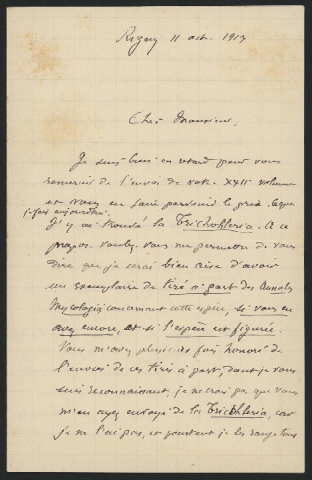 Rigny 11 oct. 1913
Cher Monsieur,
Je suis bien en retard pour vous
remercier de l'envoi de votre XXII volume
et vous en faire parvenir le prix. Ce que
je fais aujourd'hui.
J'y ai trouvé la Trichothleria. A ce
propos voulez vous me permettre de vous
dire que je serai bien aise d'avoir
un exemplaire de tiré à part des Annales
Mycologici concernant cette espèce, si vous en
avez encore, et si l'espèce est figurée.
Vous m'avez plusieurs fois honoré de
l'envoi de ces tirés à part, dont je vous
suis reconnaissant, je ne crois pas que vous
m'en ayez envoyé de la Tricothleria, car
je ne l'ai pas, et pourtant je les range tous